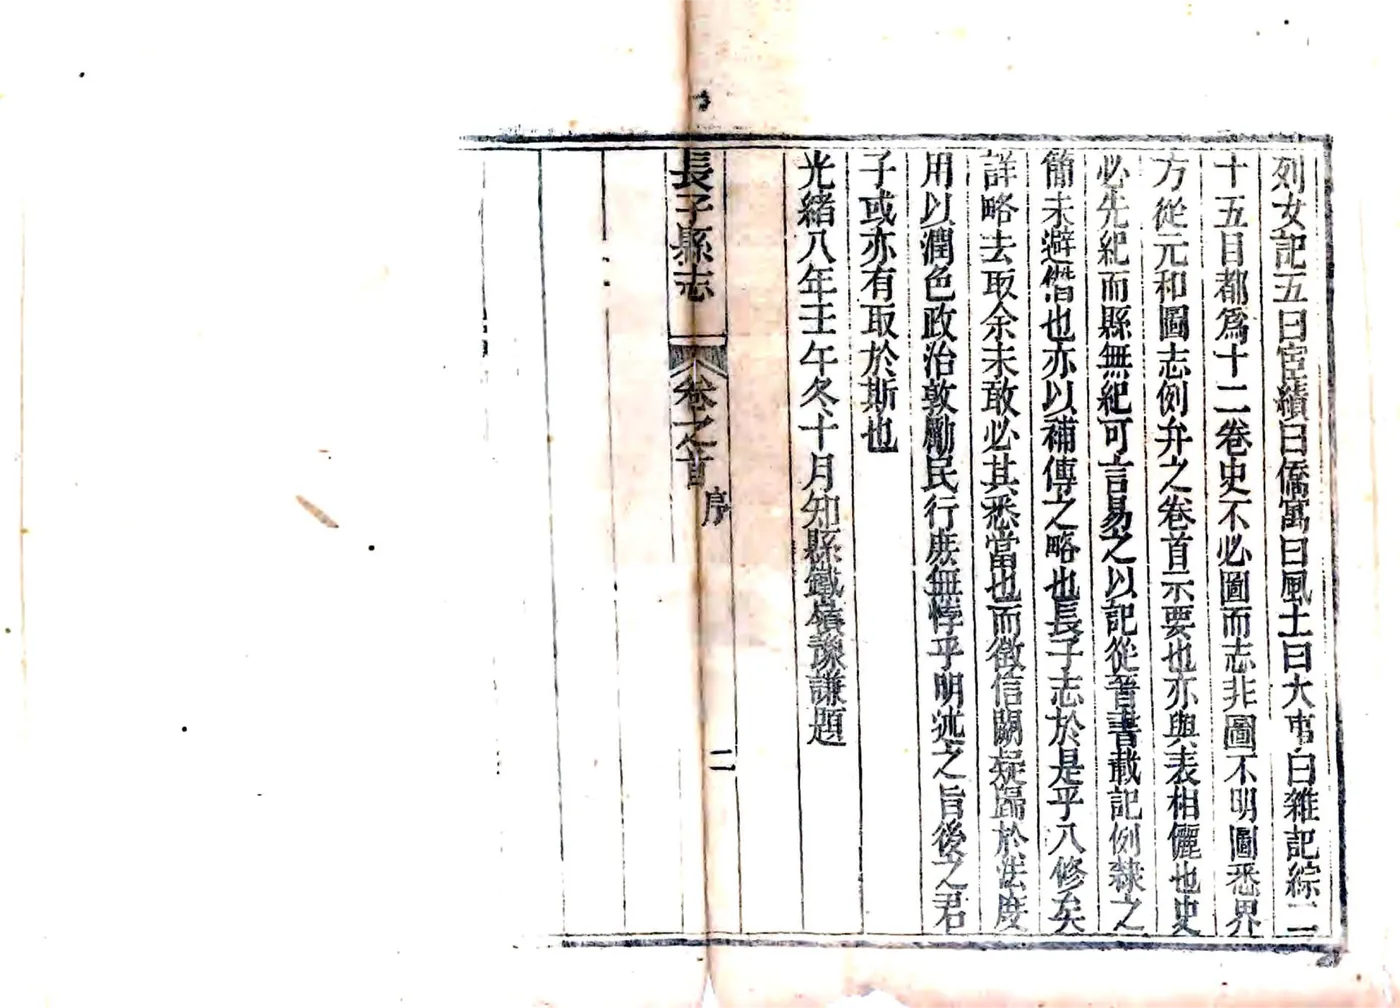 列女記五曰宦績曰僑寓曰風土曰大事曰雜記綜二
十五目都爲十二卷史不必圖而志非圖不明圖悉界
方從元和圖志例弁之卷首示要也亦與表相儷也史
必先紀而縣無紀可言易之以記從晉書載記例隸之
簡未避僭也亦以補傳之略也長子志於是乎八修矣
詳略去取余未敢必其悉當也而徵信闕疑歸於法度
用以潤色政治敦勵民行庶無悖乎明述之旨後之君
子或亦有取於斯也
光緒八年壬午冬十月知縣鐵嶺豫謙題
長子縣志 卷之首 序 二